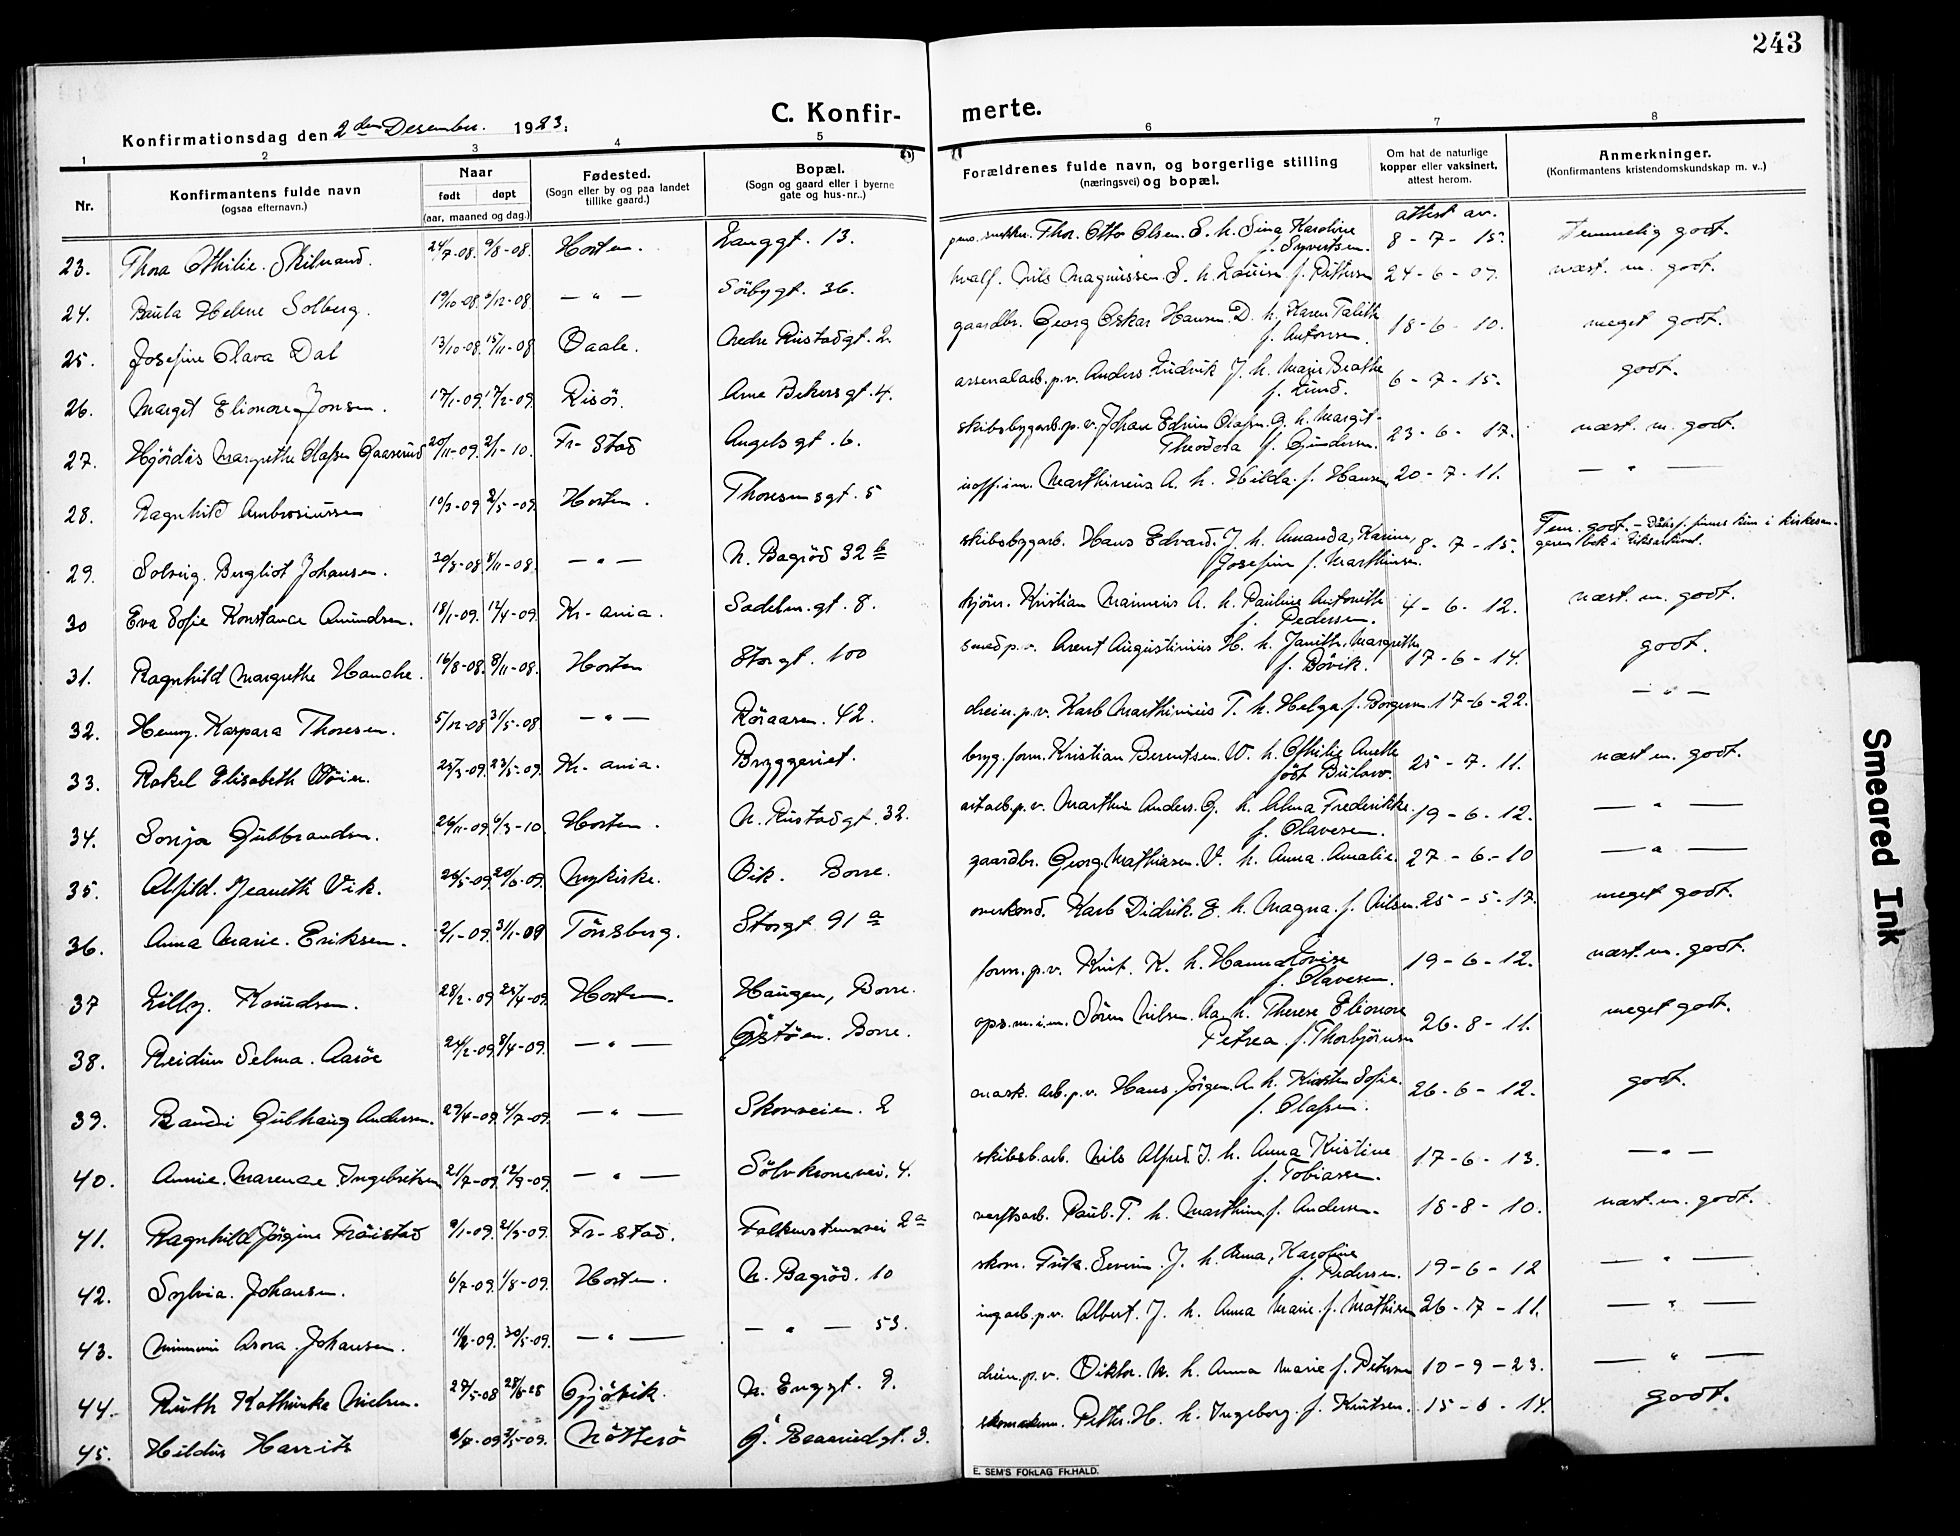 243
C. Konfir- merte.
Konfirmationsdag den 2den Desember. 1923.
1 2 3 4 5 6 7 8
Nr.
Konfirmantens fulde navn
(ogsaa efternavn.)
Naar
født døpt
(aar, maaned og dag.)
Fødested.
(Sogn eller by og paa landet
tillike gaard.)
Bopæl.
(Sogn og gaard eller i byerne
gate og hus-nr..)
Forældrenes fulde navn, og borgerlige stilling
(næringsvei) og bopæl.
Om hat de naturlige
kopper eller vaksinert,
attest herom.
Anmerkninger.
(Konfirmantens kristendomskundskap m. v..)
attest av.
23. Thora Othilie 24/7-08. 9/8-08 Horten. Langgt. 13. Thor. Otto Olsen. S. h. Sina Karoline
f. Syvertsen. 8-7-15. temmelig godt.
24. Paula Helene Solberg. 19/10-08. -08 — " — Sörbygt. 36. Nils Magnussen. S. h. Lovise f. Pettersen 24-6-09. mæst. m. godt.
25. Josefine Olava Dal 13/10-08. 15/11-08 Vaale. Nedre Rustadgt. 2. gaardbr. Georg Oskar Hansen. D. h. Karen Talitha
f. Antonsen. 18-6-10. meget godt.
26. Margit Elionore Jonsen. 17/1-09. 17/2-09. Risör. Arne Bekersgt. 4. arsenalarb. p.v. Anders Ludvik J. h. Marie Beathe
f. Lund. 6-7-15. godt.
27. Hjördis Margrethe Olafsen Gaaserud 20/11-09. 2/1-10. Fr-stad Angelsgt. 6. skibsbygarb. p.v. Johan Edvin Olafsen. G. h. Margit
Theodora f. Gundersen. 23-6-17. mæst. m. godt.
28. Ragnhild Ambrosiussen 10/3-09 2/5-09. Horten. Thoresensgt. 5 Marthinius A. h. Hilda f. Hansen 20-7-11. — " —
29. Solveig Bergliot Johansen. 30/8-08. 8/11-08. — " — N. Bagröd 32 b skibsbygarb. Hans Edvard. J. h. Amanda, Karine,
Josefine f. Marthinsen. 8-7-15. Tem. godt. –
30 Eva Sofie Konstance Amundsen. 18/1-09. 12/4-09. Kr-ania. Sadelm.gt. 8. Kristian A. h. Pauline Antonette
f. Pedersen. 4-6-12. mæst. m. godt.
31. Ragnhild Margrethe Hanche. 16/8-08. 8/11-08. Horten Storgt. 100 smed p.v. Arent Augustinius H. h. Janitha Margrethe
f. Bövik. 17-6-14. godt.
32. Henny Kaspara Thoresen. 5/12-08 31/5-08. — " — Röraasen. 42. dreier. p.v. Karl Marthinius T. h. Helga f. Borgersen 17-6-22. — " —
33. Rakel Elisabeth 25/3-09. 23/5-09. Kr-ania. Bryggeriet. bryg. form. Kristian Berentsen. W. h. Othilie Anette
födt Bülow. 25-7-11. mæst m. godt.
34. Sonja Gulbrandsen. 26/11-09 6/3-10. Horten. N. Rustadgt. 32. Marthin Anders. G. h. Alma Fredrikke.
f. Olavesen. 19-6-12. — " —
35. Alfild. Jeaneth Vik. 26/5-09 20/6-09. Nykirke. Vik. Borre. gaardbr. Georg. Mathiasen. V. h. Anna. Amalie. 27-6-10 — " —
36. Anna Marie. Eriksen. 2/1-09. 31/1-09 Tönsberg. Storgt 91 a Karl Didrik. E. h. Magna. f. Nilsen. 25-5-17. meget godt.
37 Lilly. Knudsen. 28/2-09 25/4-09. Horten. Haugen, Borre. form. p.v. Knut. K. h. Hanna Lovise
f. Olavesen. 19-6-12. mæst. m. godt.
38. Reidun Selma. Aaröe 24/2-09. 8/4-09. — " — Östöen. Borre. ops.m.i.m. Sören Nilsen. Aa. h. Therese Elionore
Petrea f. Thorbjörnsen 26-8-11. meget godt.
39. Gulhaug Andersen. 29/4-09. 4/7-09. — " — Skovveien. 2 mask. arb. p.v. Hans Jörgen A. h. Kirsten Sofie.
f. Olafsen. 26-6-12. godt.
40. Annie. Ingebretsen 21/7-09. 12/9-09. — " — Sölvkronevei. 4. skibsb.arb. Nils Alfred. I. h. Anna Kristine
f. Tobiassen. 17-6-13. — " —
41. Ragnhild Jörgine Tröistad 9/1-09. 21/3-09. Fr-stad. Falkenstensvei 2 a verftsarb. Paul. T. h. Marthine f. Andersen. 18-8-10. mæst. m. godt.
42. Sylvia. Johansen. 6/7-09. 1/8-09. Horten. N. Bagröd. 10 skom. Frik. Severin. J. h. Anna, Karoline
f. Pedersen. 19-6-12 — " —
43. Johansen. -09. 30/5-09. — " — — " — 53. Albert. J. h. Anna Marie. f. Mathisen 26-7-11. — " —
44. Ruth Kathinka Nielsen. 29/5-08 28/6-08 Gjövik. N. Enggt. 9. dreier. p.v. Viktor. N. h. Anna Marie f. Petersen 10-9-23. — " —
45. Hildur Harrits -09 -09. Nötterö G. 3. Petter. H. h. Ingeborg. f. Knutsen. 15-6-14. godt.
E. SEM'S FORLAG FR.HALD.
Smeared Ink